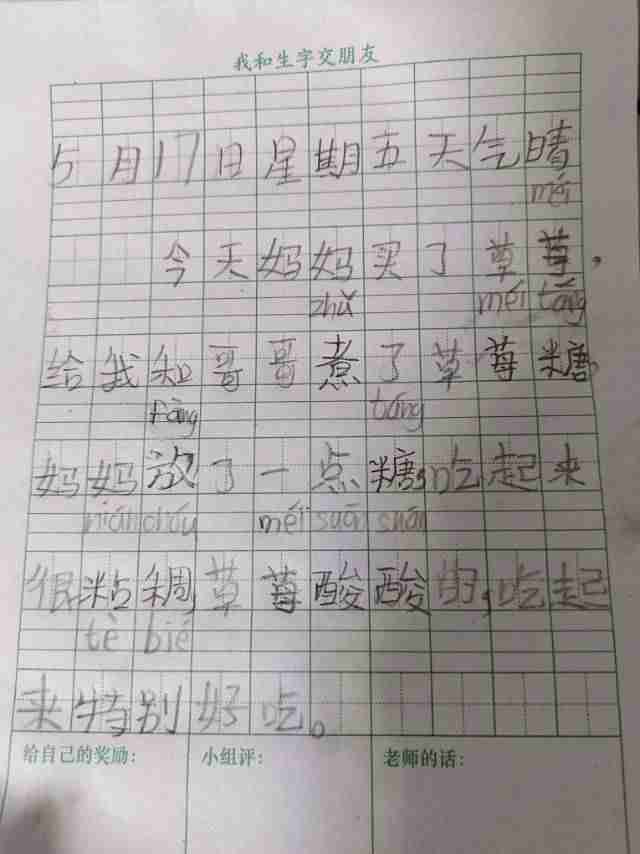 我和生字交朋友
5月17日星期五天气晴
méi
今天妈妈买了草莓，
zhǔ méi táng
给我和哥哥煮了草莓糖，
fàng táng
妈妈放了一点糖，吃起来
nián chóu méi suān suān
很粘稠，草莓酸酸的，吃起
tè bié
来特别好吃。
给自己的奖励： 小组评： 老师的话：